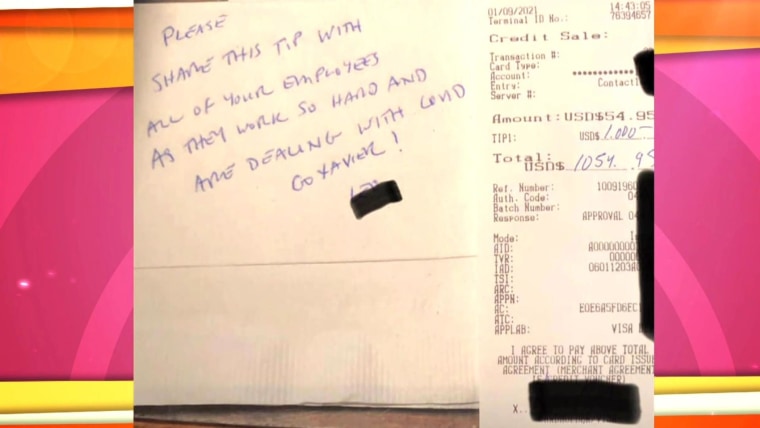 PLEASE
SHARE THIS TIP WITH
ALL OF YOUR EMPLOYEES
AS THEY WORK SO HARD AND
ARE DEALING WITH COVID
GO XAVIER!
01/09/2021 14:43:05
Terminal ID No.: 76394657
Credit Sale:
Transaction #:
Card Type:
Account: ************
Entry: Contactl
Server #:
Amount: USD$54.95
TIP1: USD$ 1,000-
Total:
USD$ 1054.95
Ref. Number: 10091960
Auth. Code: 04
Batch Number:
Response: APPROVAL 04
Mode: I
AID: A00000000
TVR: 00000
IAD: 06011203A0
TSI:
ARC:
APPN:
AC: E0E6A5FD6EC1
ATC:
APPLAB: VISA
I AGREE TO PAY ABOVE TOTAL
AMOUNT ACCORDING TO CARD ISSU
AGREEMENT (MERCHANT AGREEMENT
IF CREDIT VOUCHER)
X..